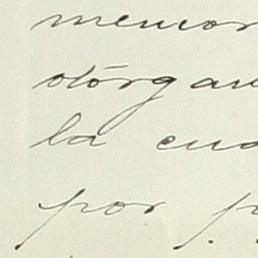 memor
otórgan
la cua
por p